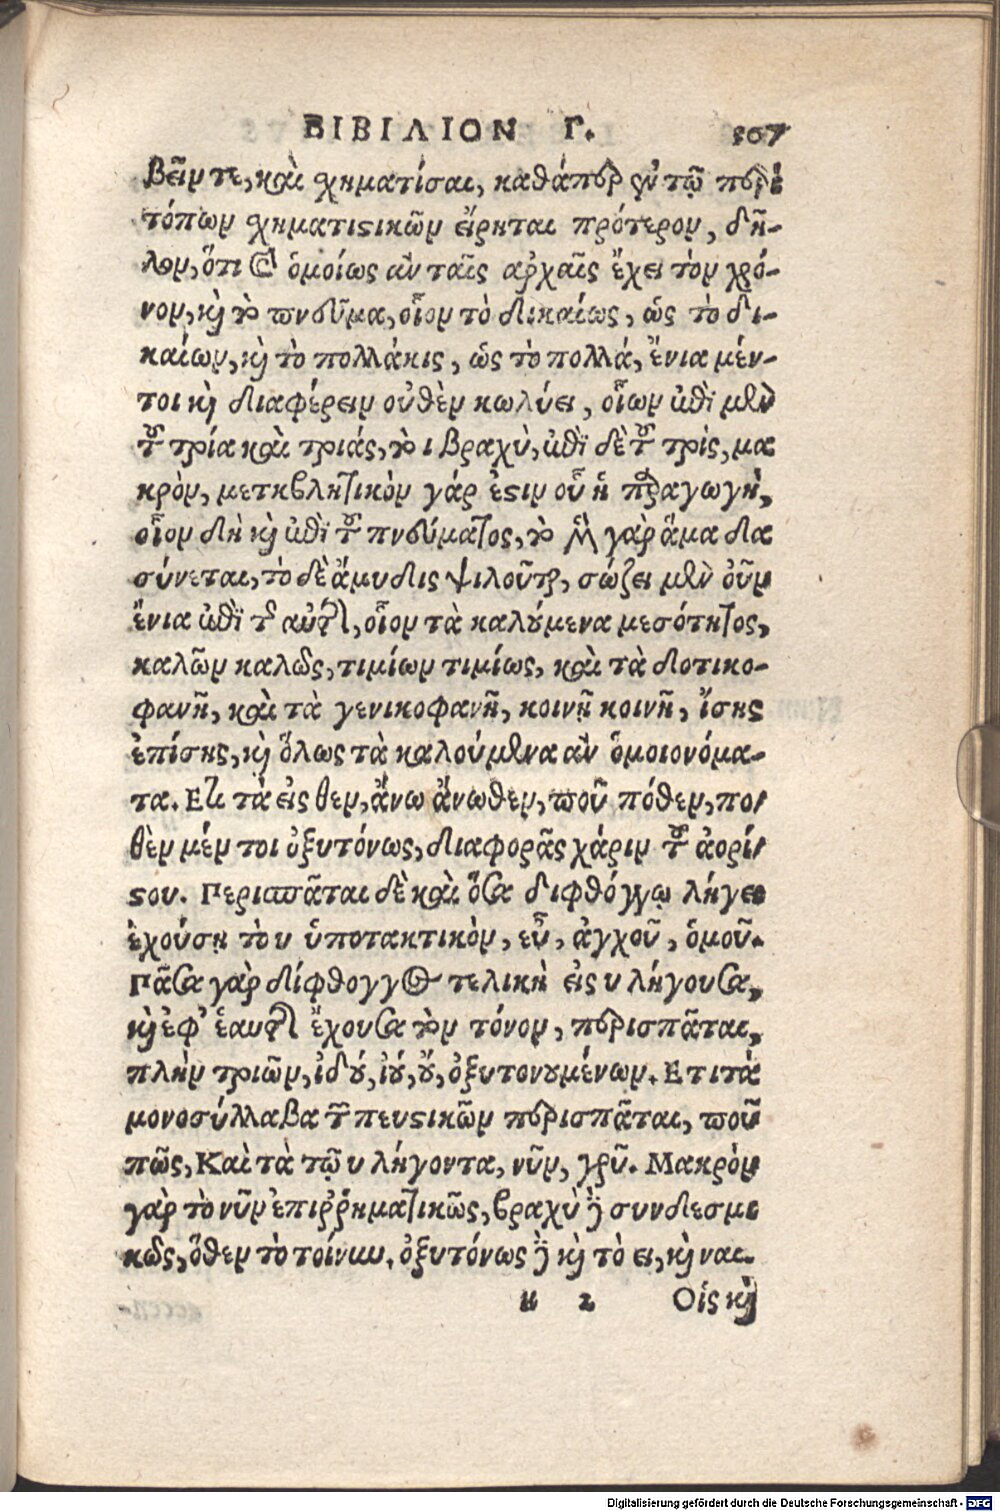 ΒΙΒΙΛΙΟΝ Γ. 107
βεῖν τε, καὶ χηματίσαι, καθάπερ ἐν τῷ περὶ
τόπων χηματιϛικῶν εἴρηται πρότερον, δῆ-
λον, ὅτι ὁμοίως ἀν ταῖς ἀρχαῖς ἔχει τὸν χρό-
νον, κỳ τὸ πνεῦμα, οἷον τὸ δικαίως, ὡς τὸ δι-
καίων, κỳ τὸ πολλάκις, ὡς τὸ πολλά, ἔνια μέν-
τοι κỳ διαφέρειν οὐθὲν κωλύει, οἷων ἐπὶ μὲν
τοῦ τρία καὶ τριάς, τὸ ι βραχὺ, ἐπὶ δὲ τοῦ τρὶς, μα
κρὸν, μεταβλητικὸν γάρ ἐϛιν οὖ ἡ παραγωγὴ,
οἷον δὴ κỳ ἐπὶ τοῦ πνεύματος, τὸ μὲν γὰρ ἅμα δα
σύνεται, τὸ δὲ ἄμυδις ψιλοῦται, σώζει μὲν οὖν
ἔνια ἐπὶ τὸ αὐτὸ, οἷον τὰ καλούμενα μεσότητος,
καλῶν καλῶς, τιμίων τιμίως, καὶ τὰ δοτικο-
φανῆ, καὶ τὰ γενικοφανῆ, κοινῇ κοινῆ, ἴσης
ἐπίσης, κỳ ὅλως τὰ καλούμενα ἀν ὁμοιονόμα-
τα. Ετι τὰ εἰς θεν, ἄνω ἄνωθεν, ποῦ πόθεν, πο-
θὲν μέν τοι ὀξυτόνως, διαφορᾶς χάριν τοῦ ἀορί-
ϛου. Περισπᾶται δὲ καὶ ὅσα διφθόγγῳ λήγει
ἐχούσῃ τὸ υ ὑποτακτικὸν, εὖ, ἀγχοῦ, ὁμοῦ.
Πᾶσα γὰρ δίφθογγος τελικὴ εἰς υ λήγουσα,
κỳ ἐφ' ἑαυτὴν ἔχουσα τὸν τόνον, περισπᾶται,
πλὴν τριῶν, ἰδού, ἰού, οὔ, ὀξυτονουμένων. Ετι τὰ
μονοσύλλαβα τῶν πευϛικῶν περισπᾶται, ποῦ
πῶς, Καὶ τὰ τῷ υ λήγοντα, νῦν, γρῦ. Μακρὸν
γὰρ τὸ νῦν ἐπιῤῥηματικῶς, βραχὺ δὲ συνδεσμι
κῶς, ὅθεν τὸ τοίνυν, ὀξυτόνως δὲ κỳ τὸ ει, κỳ ναι.
κ 2 Οἷς κỳ
Digitalisierung gefördert durch die Deutsche Forschungsgemeinschaft - DFG